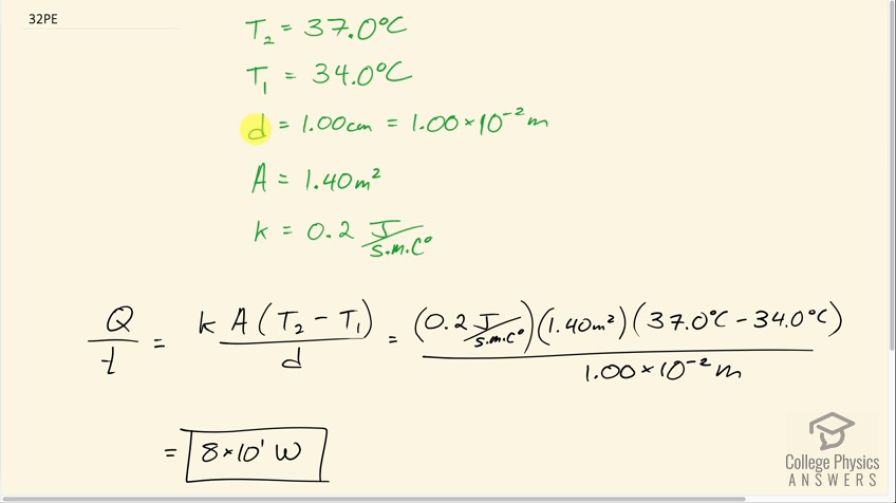 32PE
T₂ = 37.0°C
T₁ = 34.0°C
d = 1.00cm = 1.00×10⁻² m
A = 1.40m²
k = 0.2 J/s.m.C°
Q/t = k A (T₂ − T₁)/d = (0.2 J/s.m.C°)(1.40m²)(37.0°C − 34.0°C)/1.00×10⁻² m
= 8×10¹ W
College Physics
ANSWERS